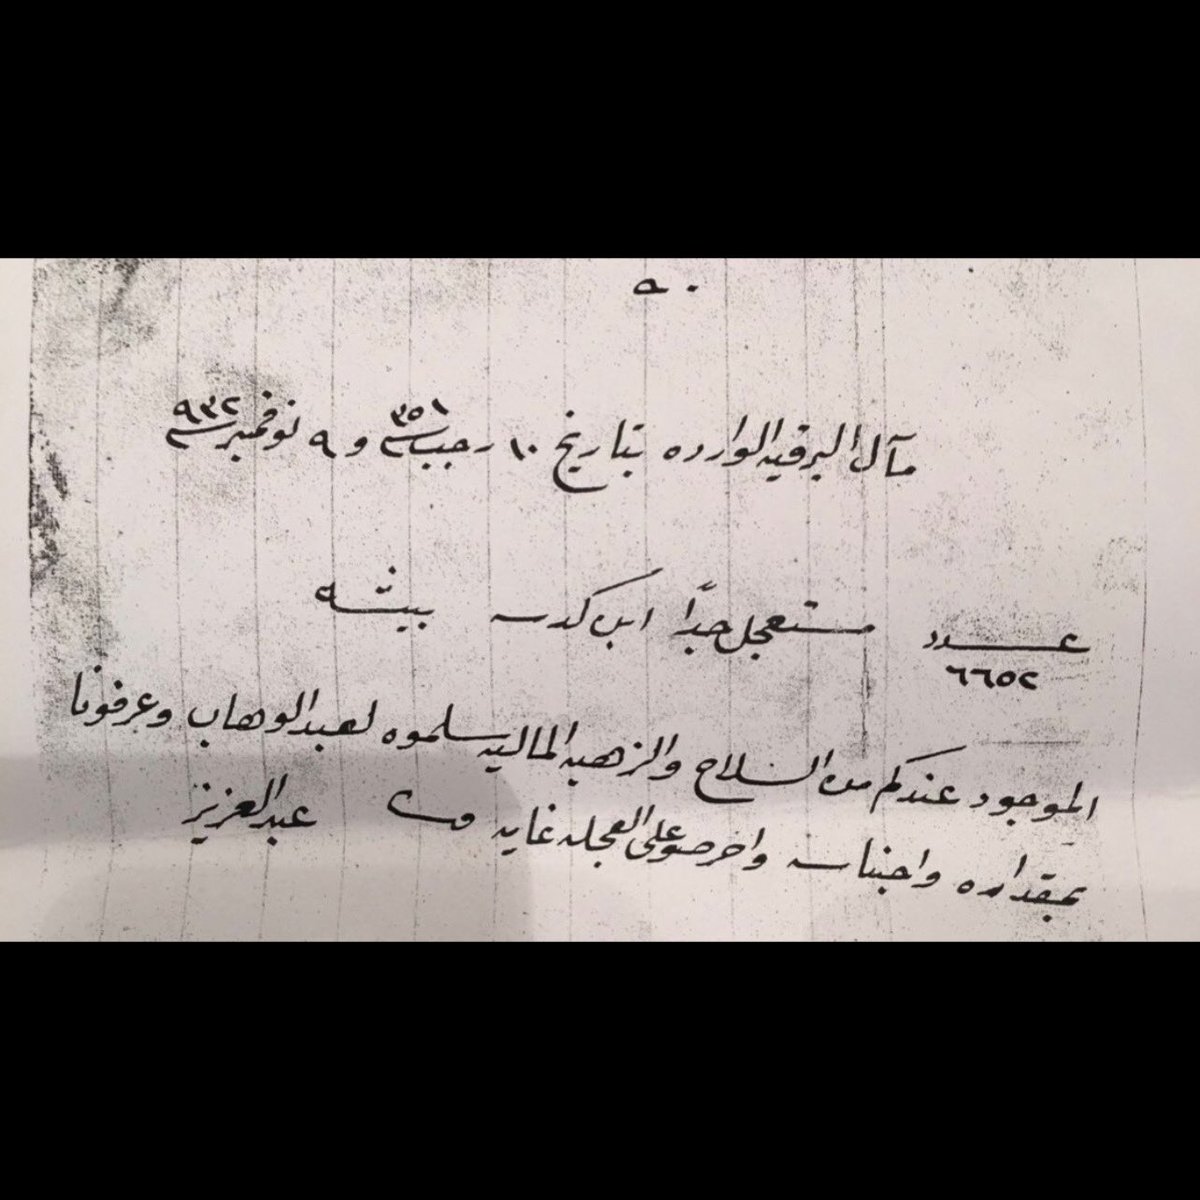 مآل البرقيه الوارده بتاريخ ١٠ رجب سنة ٣٥١ و ٩ نوفمبر سنة ٩٣٢
عدد ٦٦٥٢ مستعجل جداً ابن كدسه بيشه
الموجود عندكم من السلاح والزهبه الماليه سلموه لعبدالوهاب وعرفونا
بمقداره واجناسه واحرصو على العجله غايه عبدالعزيز